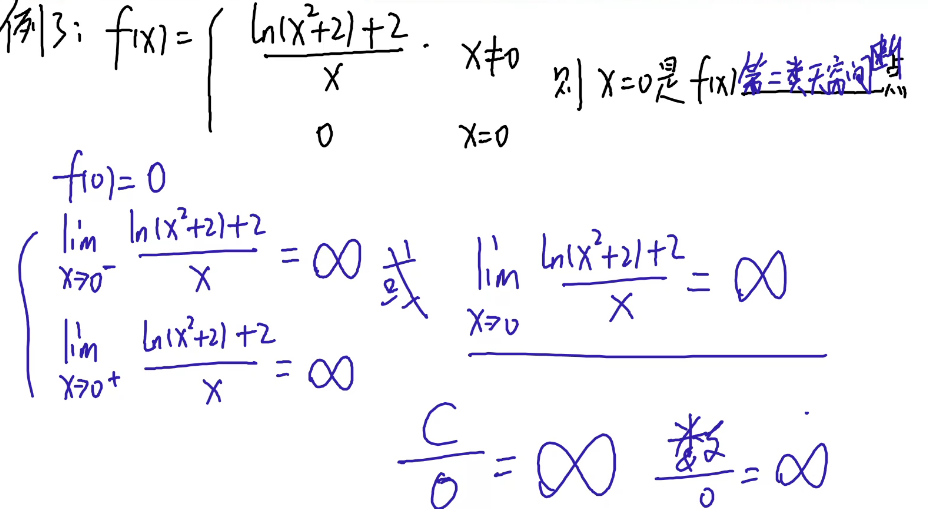 例3: f(x) = { (ln(x²+2)+2)/x . x≠0 则 x=0是 f(x) 第二类无穷间断点
0 x=0
f(0) = 0
lim x→0⁻ (ln(x²+2)+2)/x = ∞ 或 lim x→0 (ln(x²+2)+2)/x = ∞
lim x→0⁺ (ln(x²+2)+2)/x = ∞
C/0 = ∞ 数/0 = ∞